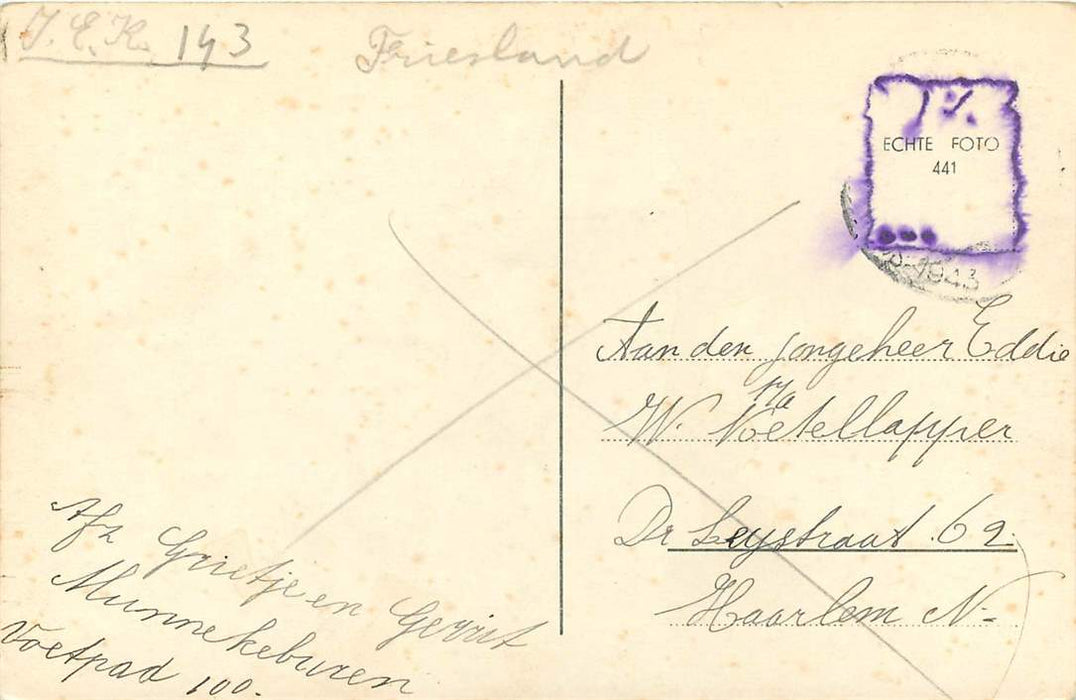 J. E. K. 143
Friesland
1½
ECHTE FOTO
441
1943
Aan den jongeheer Eddie
W. Ketellapper
Dr Leystraat 62.
Haarlem N-
Afz Grietje en Gerrit
Munnekeburen
Voetpad 100.